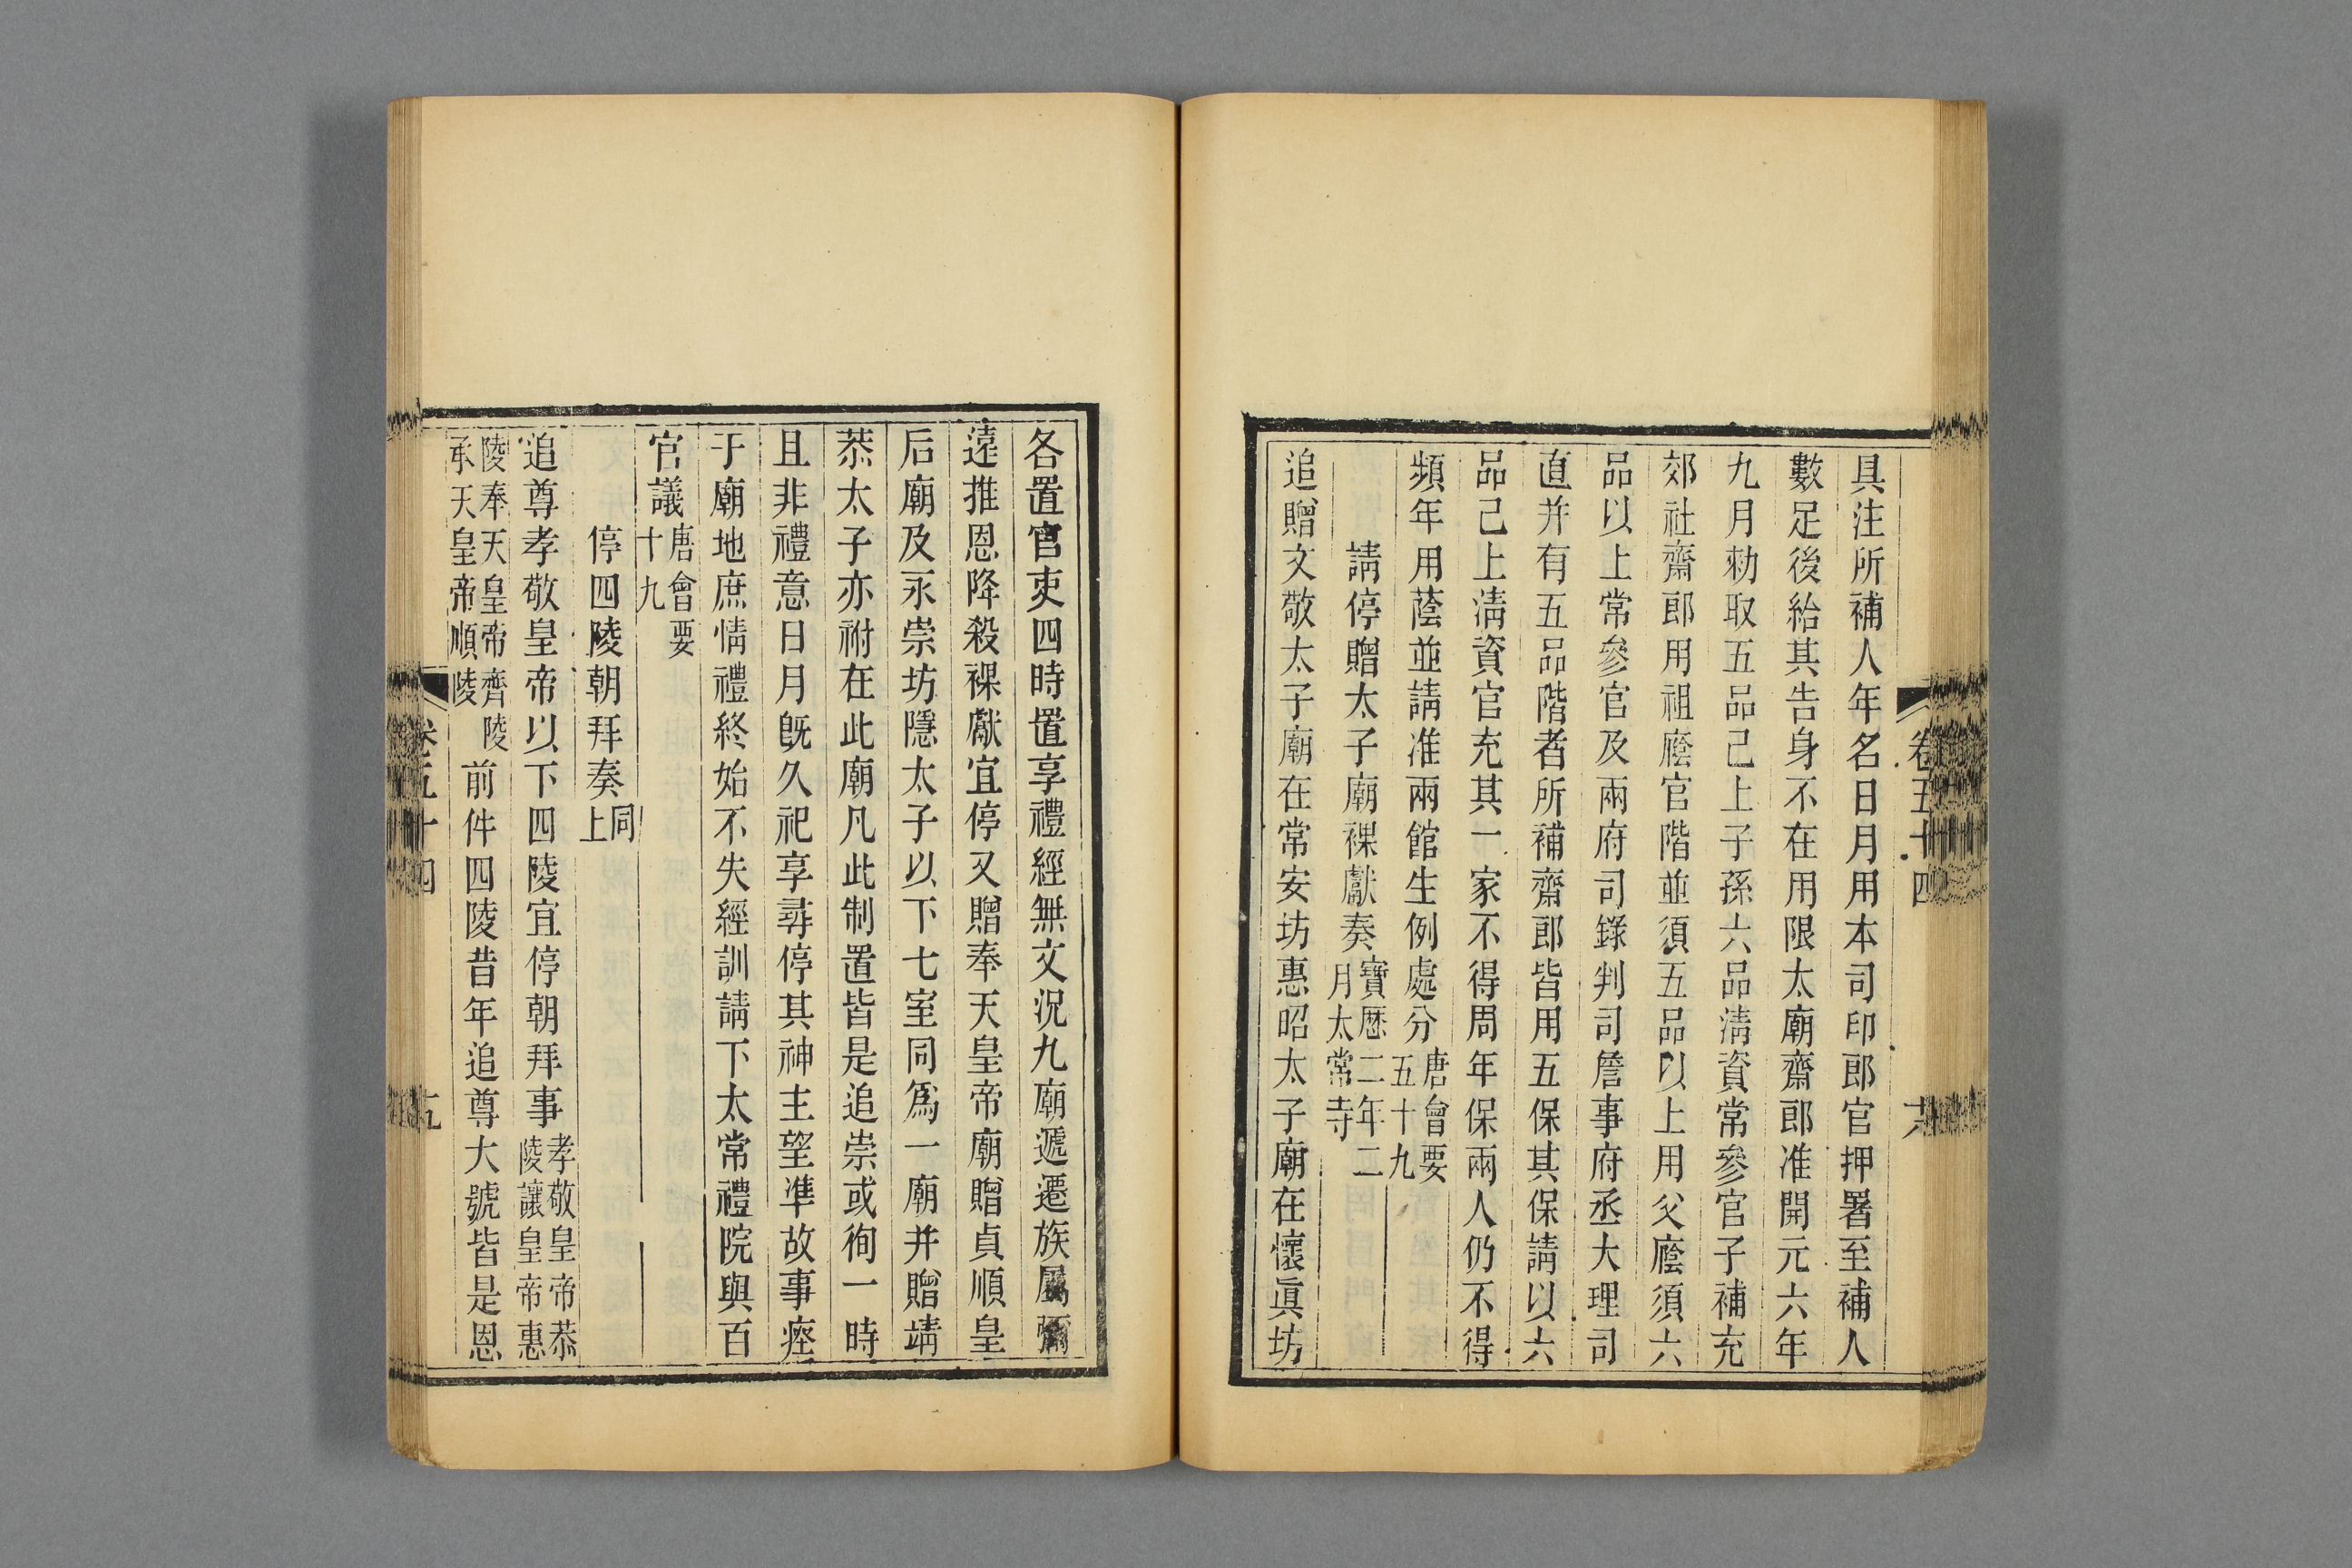 卷五十四
十八
具注所補人年名日月用本司印郎官押署至補人
數足後給其告身不在用限太廟齋郎准開元六年
九月勑取五品己上子孫六品淸資常參官子補充
郊社齋郎用祖廕官階並須五品以上用父廕須六
品以上常參官及兩府司錄判司詹事府丞大理司
直并有五品階者所補齋郎皆用五保其保請以六
品己上淸資官充其一家不得周年保兩人仍不得
頻年用蔭並請准兩館生例處分唐會要
五十九
請停贈太子廟祼獻奏寶歷二年二
月太常寺
追贈文敬太子廟在常安坊惠昭太子廟在懷眞坊
各置官吏四時置享禮經無文況九廟遞遷族屬彌
遠推恩降殺祼獻宜停又贈奉天皇帝廟贈貞順皇
后廟及永崇坊隱太子以下七室同爲一廟并贈靖
恭太子亦祔在此廟凡此制置皆是追崇或徇一時
且非禮意日月旣久祀享尋停其神主望準故事瘞
于廟地庶情禮終始不失經訓請下太常禮院與百
官議唐會要
十九
停四陵朝拜奏同
上
追尊孝敬皇帝以下四陵宜停朝拜事孝敬皇帝恭
陵讓皇帝惠
陵奉天皇帝齊陵
承天皇帝順陵
前件四陵昔年追尊大號皆是恩
卷五十四
十九